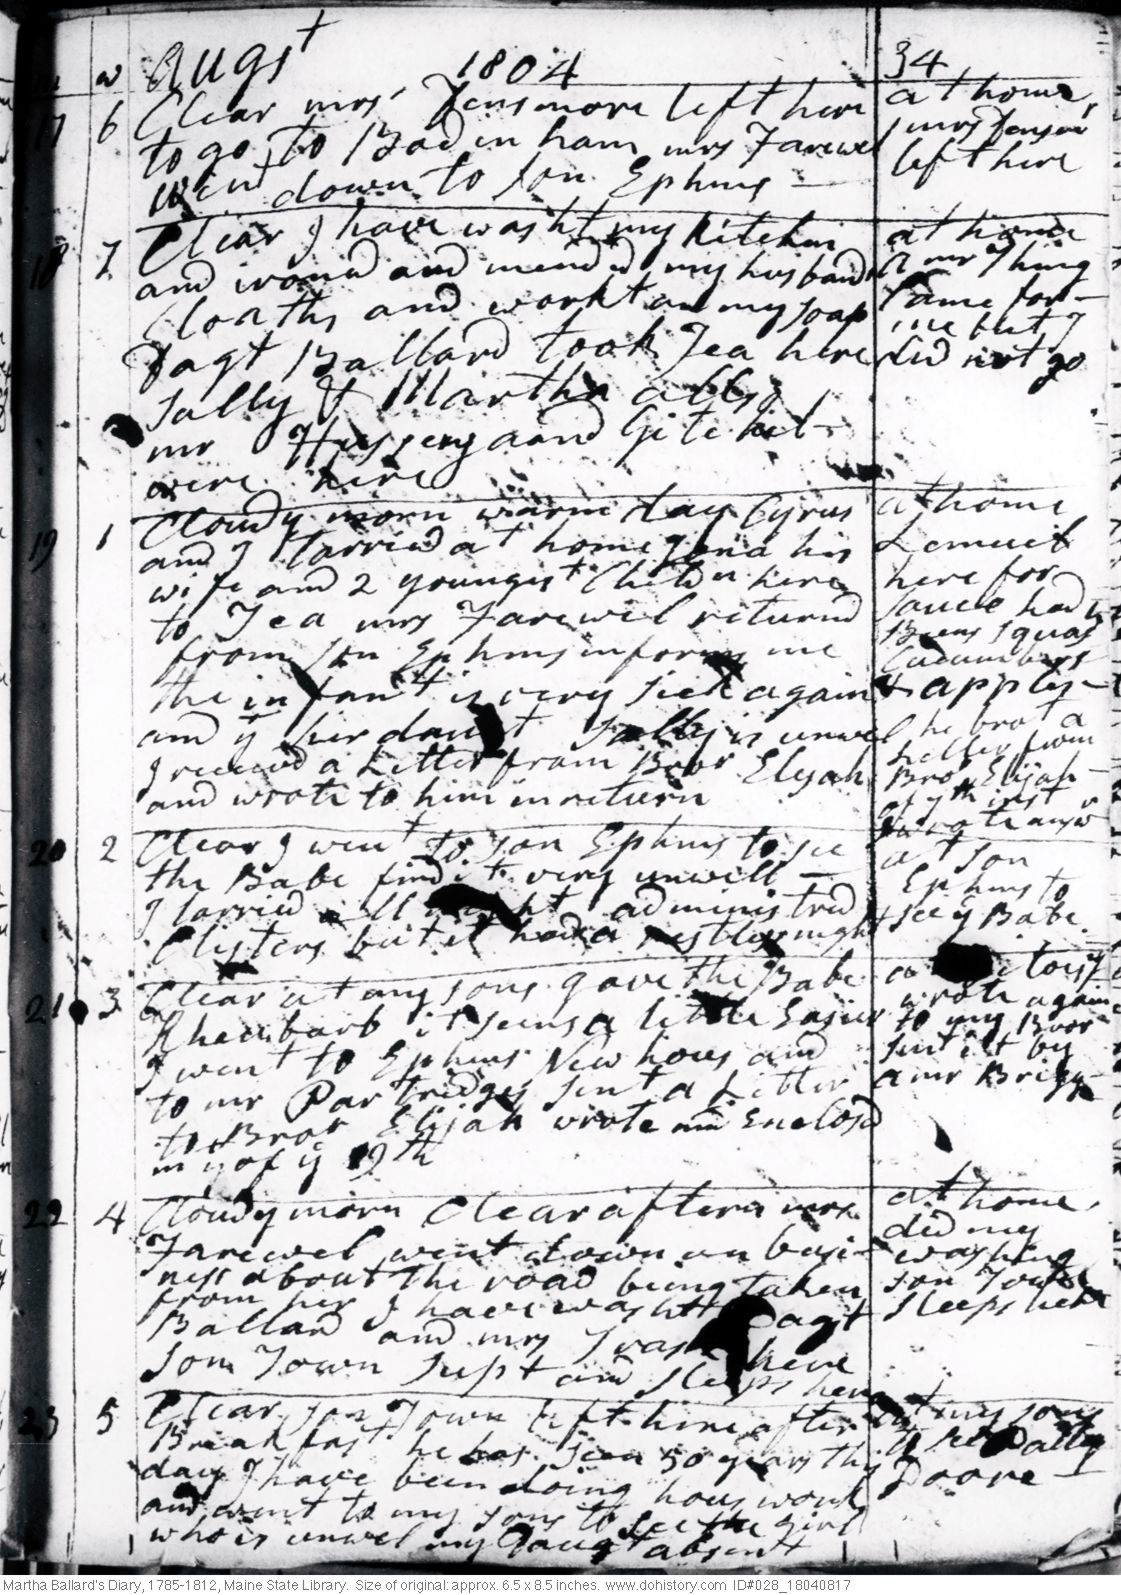 w Augst 1804 34
17 6 Clear mrs Densmore left here
to go to Badinham mrs Farewel
went down to son Ephms
at home,
mrs Densmr
left here
18 7 Clear I have washt my kitchin
and ironed and mended my husbands
Cloaths and workt on my soap
Dagt Ballard took Tea here
Sally & Martha allso
mr Hussey and Getchel
were here
at home
a mr Thing
Came for
me but I
did not go
19 1 Cloudy morn warm day Cyrus
and I tarried at home Jona his
wife and 2 youngest Childn here
to Tea mrs Farewel returnd
from son Ephms informs me
the infant is very sick again
and yt her daugt Sally is unwel
I received a Letter from Bror Elijah
and wrote to him in return
at home
Lemuel
here for
sauce had
Beens Squas
Cucumbers
& apples
he brot a
Letter from
Bror Elijah
of 7th inst
I wrote answr
20 2 Clear I went to son Ephms to see
the Babe find it very unwell
I tarried all night administred
Clisters but it had a restless night
at son
Ephms to
see ye Babe
21 3 Clear at my sons gave the Babe
Rheubarb it seems a little Easier
I went to Ephms New hous and
to mr Partridges sent a Letter
to Bror Elijah wrote and Enclosd
in yt of ye 19th
wrote again
to my Bror
sent it by
a mr Brigg
22 4 Cloudy morn Clear aftern mrs
Farewel went down on busi-
ness about the road being taken
from her I have washt Dagt
Ballard and mrs here
Son Town supt and sleeps here
at home,
did my
washing
son Town
sleeps here
23 5 Clear son Town left here after
Breakfast he has seen 50 years this
day I have been doing hous work
and went to my sons to see the girl
who is unwel my Daugt absent
at my sons
to see Dally
Poore
Martha Ballard's Diary, 1785-1812, Maine State Library. Size of original: approx. 6.5 x 8.5 inches. www.dohistory.com ID#028_18040817